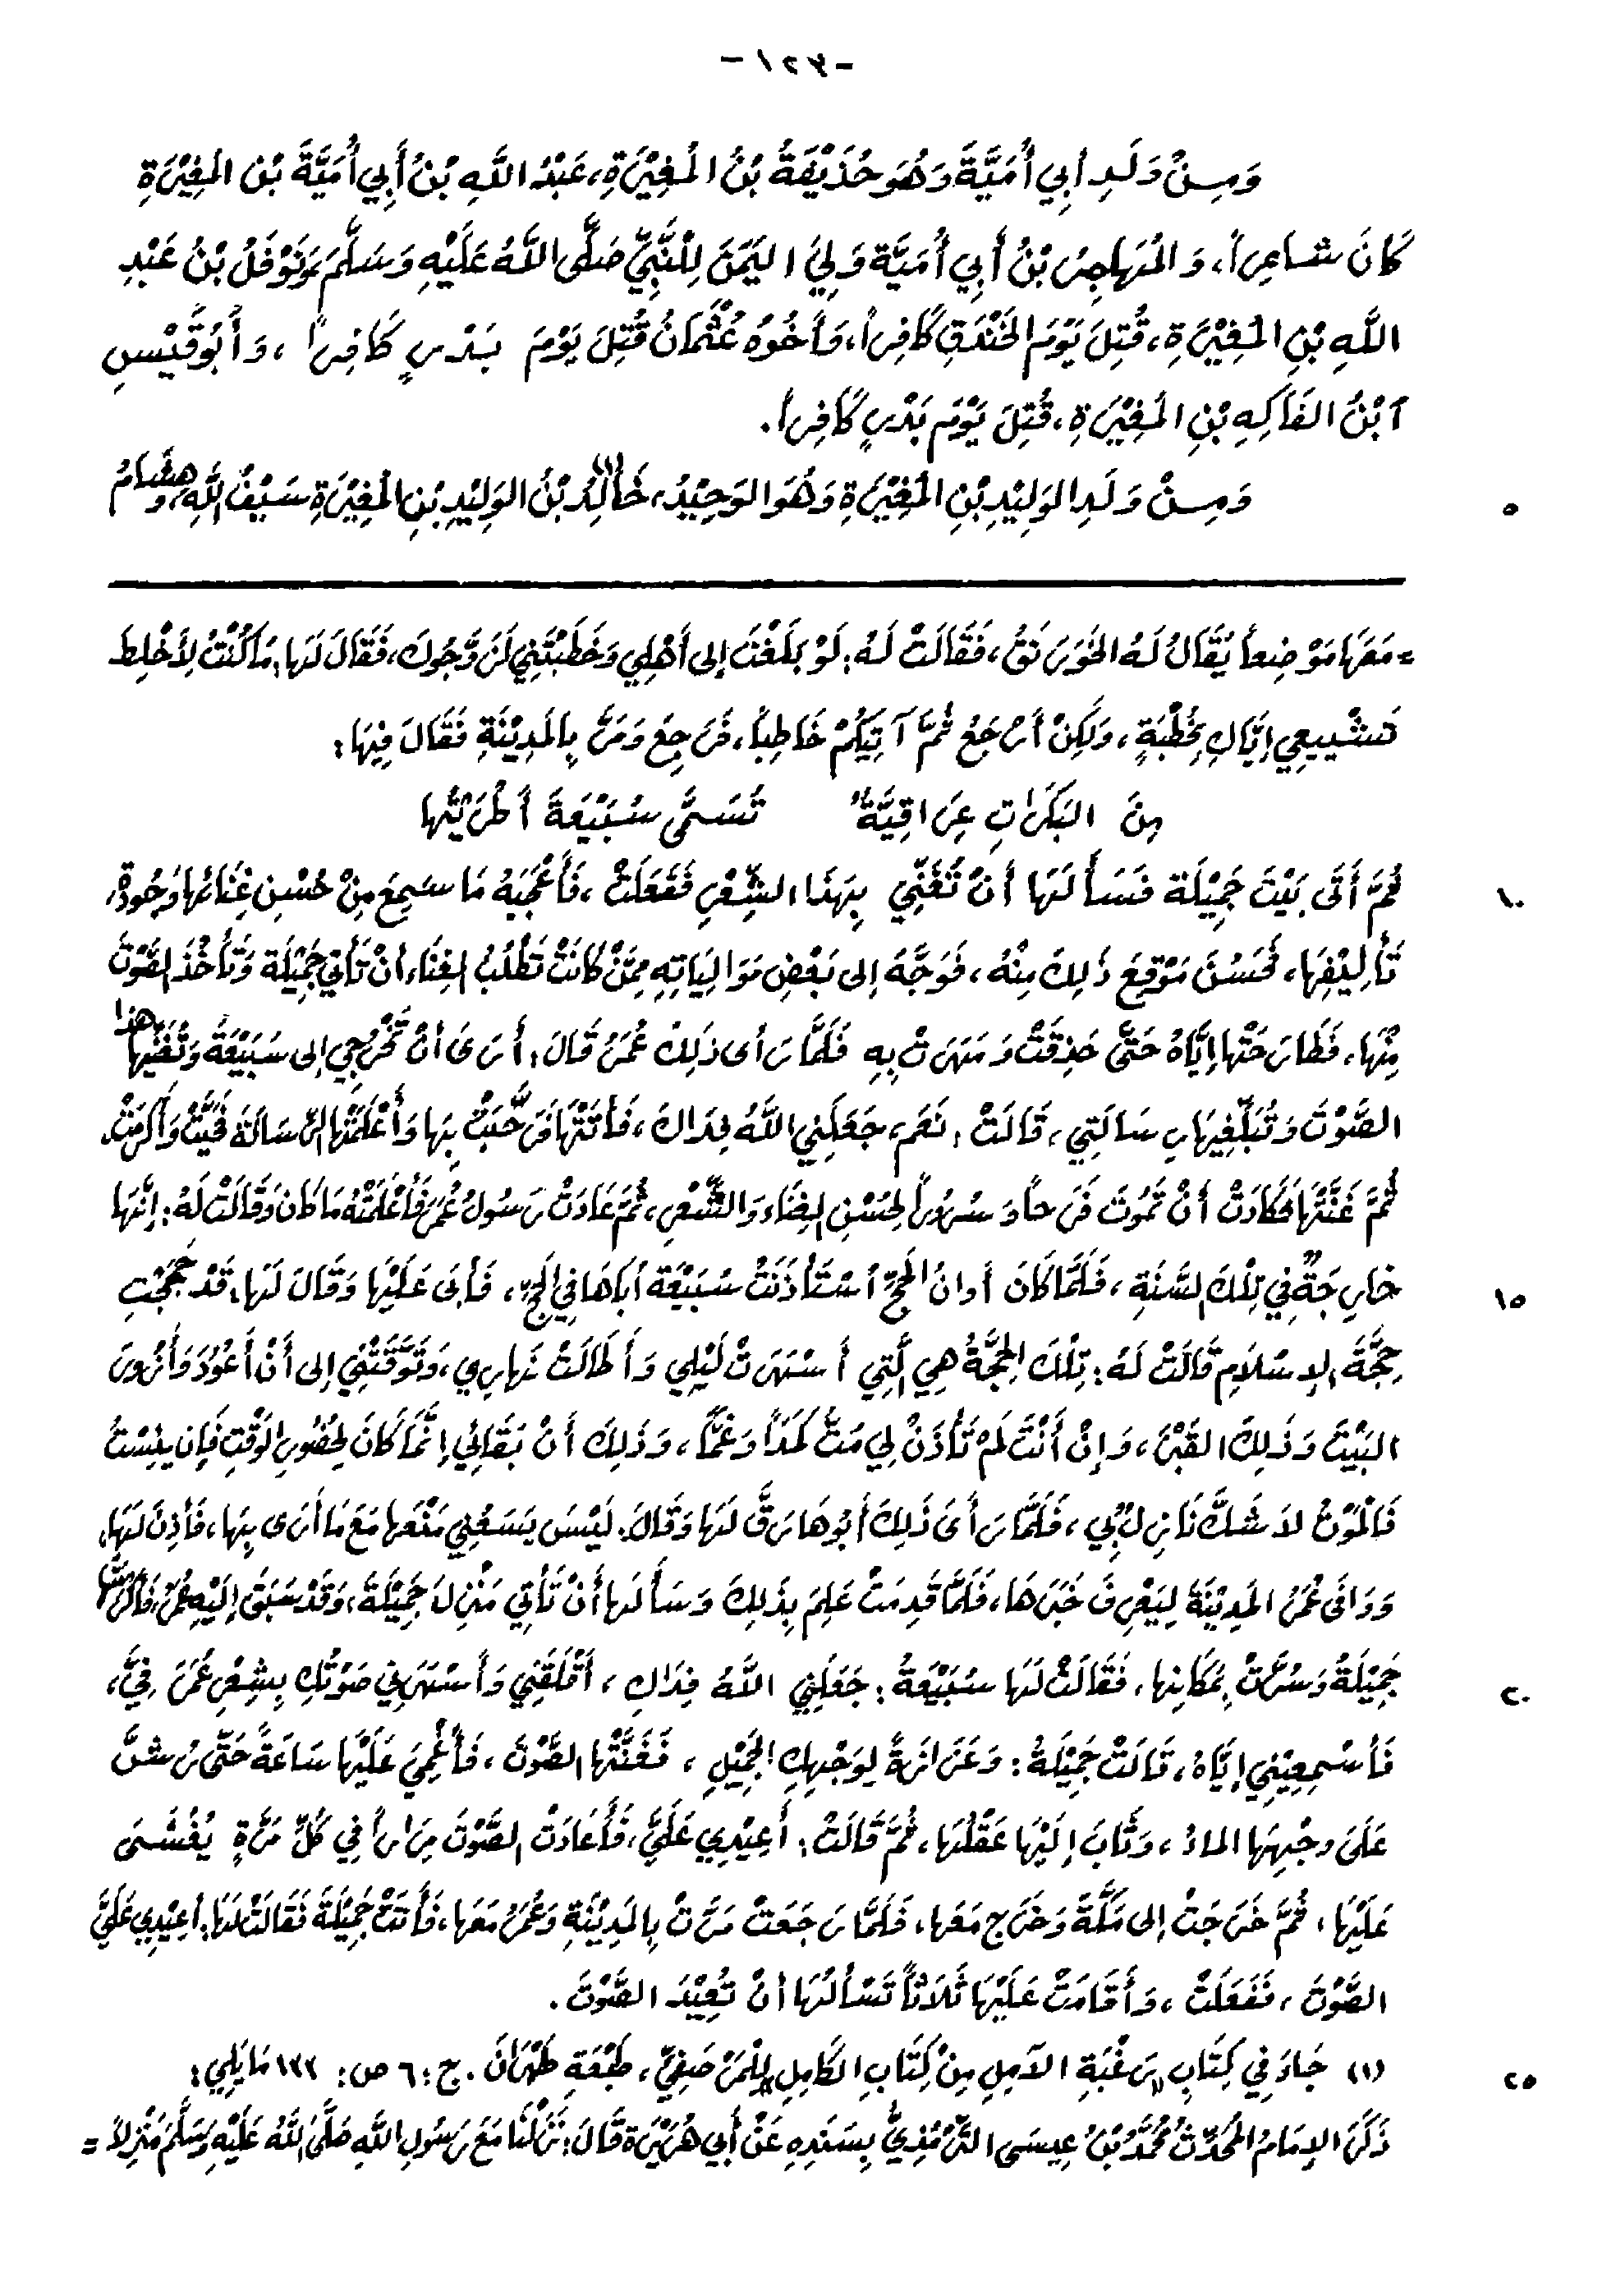 وَمِنْ وَلَدِ أَبِي أُمَيَّةَ وَهُوَ حُذَيْفَةُ بْنُ المُغِيْرَةِ، عَبْدُ اللَّهِ بْنُ أَبِي أُمَيَّةَ بْنِ المُغِيْرَةِ
كَانَ شَاعِراً، وَالمُهَاجِرُ بْنُ أَبِي أُمَيَّةَ وَلِيَ اليَمَنَ لِلْنَّبِيِّ صَلَّى اللَّهُ عَلَيْهِ وَسَلَّمَ وَنَوْفَلُ بْنُ عَبْدِ
اللَّهِ بْنِ المُغِيْرَةِ، قُتِلَ يَوْمَ الخَنْدَقِ كَافِراً، وَأَخُوهُ عُثْمَانُ قُتِلَ يَوْمَ بَدْرٍ كَافِراً، وَأَبُو قَيْسِ
ٱبْنُ الفَاكِهِ بْنِ المُغِيْرَةِ، قُتِلَ يَوْمَ بَدْرٍ كَافِراً.
وَمِنْ وَلَدِ الوَلِيْدِ بْنِ المُغِيْرَةِ وَهُوَ الوَحِيْدُ، خَالِدُ (١) بْنُ الوَلِيْدِ بْنِ المُغِيْرَةِ سَيْفُ اللَّهِ، وَهِشَامُ
٥
= مَعَهَا مَوْضِعاً يُقَالُ لَهُ الخَوَرْنَقُ، فَقَالَتْ لَهُ: لَوْ بَلَغْتَ إِلى أَهْلِي وَخَطَبْتَنِي لَزَوَّجُوكَ، فَقَالَ لَهَا: مَا كُنْتُ لِأَخْلِطَ
تَشْيِيعِي إِيَّاكِ بِخُطْبَةٍ، وَلَكِنْ أَرْجِعُ ثُمَّ آتِيَكُمْ خَاطِباً، فَرَجِعَ وَمَرَّ بِالمَدِيْنَةِ فَقَالَ فِيْهَا:
مِنَ البَكَرَاتِ عِرَاقِيَّةٌ تُسَمَّى سُبَيْعَةَ أَطْرَيْتُهَا
ثُمَّ أَتَى بَيْتَ جَمِيْلَةَ فَسَأَلَهَا أَنْ تُغَنِّي بِهَذَا الشِّعْرِ فَفَعَلَتْ، فَأَعْجَبَهُ مَا سَمِعَ مِنْ حُسْنِ غِنَائِهَا وَجُودَةِ
١٠
تَأْلِيْفِهَا، فَحَسُنَ مَوْقِعَ ذَلِكَ مِنْهُ، فَوَجَّهَ إِلى بَعْضِ مَوَالِيَاتِهِ مِمَّنْ كَانَتْ تَطْلُبُ الغِنَاءَ أَنْ تَأْتِيَ جَمِيْلَةَ وَتَأْخُذَ الصَّوْتَ
مِنْهَا، فَطَارَحَتْهَا إِيَّاهُ حَتَّى حَذِقَتْ وَمَهَرَتْ بِهِ فَلَمَّا رَأَى ذَلِكَ عُمَرُ قَالَ: أَرَى أَنْ تَخْرُجِي إِلى سُبَيْعَةَ وَتُغَنِّيهَا هَذا
الصَّوْتَ وَتُبَلِّغِيهَا رِسَالَتِي، قَالَتْ: نَعَمْ، جَعَلَنِي اللَّهُ فِدَاكَ، فَأَتَتْهَا فَرَحَّبَتْ بِهَا وَأَعْلَمَتْهَا الرِّسَالَةَ فَحَيَّتْ وَأَكْرَمَتْ،
ثُمَّ غَنَّتْهَا فَكَادَتْ أَنْ تَمُوتَ فَرَحاً وَسُرُوراً لِحُسْنِ الغِنَاءِ وَالشِّعْرِ، ثُمَّ عَادَتْ رَسُولُ عُمَرَ فَأَعْلَمَتْهُ مَا كَانَ وَقَالَتْ لَهُ: إِنَّهَا
خَارِجَةٌ فِي تِلْكَ السَّنَةِ، فَلَمَّا كَانَ أَوانُ الحَجِّ ٱسْتَأْذَنَتْ سُبَيْعَةُ أَبَاهَا فِي الحَجِّ، فَأَبَى عَلَيْهَا وَقَالَ لَهَا: قَدْ حَجَجْتِ
١٥
حِجَّةَ الإِسْلَامِ قَالَتْ لَهُ: تِلْكَ الحِجَّةُ هِيَ الَّتِي أَسْهَرَتْ لَيْلِي وَأَطَالَتْ نَهَارِي، وَتَوَّقَتْنِي إِلى أَنْ أَعُوْدَ وَأَزُورَ
البَيْتَ وَذَلِكَ القَبْرَ، وَإِنْ أَنْتَ لَمْ تَأْذَنْ لِي مَتُّ كَمَداً وَغَمًّا، وَذَلِكَ أَنْ بَقَائِي إِنَّمَا كَانَ لِحُضُورِ الوَقْتِ فَإِن يَئِسْتُ
فَالمَوْتُ لاَ شَكَّ نَازِلٌ بِي، فَلَمَّا رَأَى ذَلِكَ أَبُوهَا رَقَّ لَهَا وَقَالَ: لَيْسَ يَسَعُنِي مَنْعَهَا مَعَ مَا أَرَى بِهَا، فَأَذِنَ لَهَا،
وَوَافَى عُمَرُ المَدِيْنَةَ لِيَعْرِفَ خَبَرَهَا، فَلَمَّا قَدِمَتْ عَلِمَ بِذَلِكَ وَسَأَلَهَا أَنْ تَأْتِيَ مَنْزِلَ جَمِيْلَةَ، وَقَدْ سَبَقَ إِلَيْهِ عُمَرُ، فَأَكْرَمَتْهَا
جَمِيْلَةُ وَسُرَّتْ بِمَكَانِهَا، فَقَالَتْ لَهَا سُبَيْعَةُ: جَعَلَنِي اللَّهُ فِدَاكِ، أَقْلَقَنِي وَأَسْهَرَنِي صَوْتُكِ بِشِعْرِ عُمَرَ فِيَّ،
٢٠
فَأَسْمِعِيْنِي إِيَّاهُ، قَالَتْ جَمِيْلَةُ: وَعَزَازَةً لِوَجْهِكِ الجَمِيْلِ، فَغَنَّتْهَا الصَّوْتَ، فَأُغْمِيَ عَلَيْهَا سَاعَةً حَتَّى رُشَّ
عَلَى وجْهِهَا الماءُ، وَثَابَ إِلَيْهَا عَقْلُهَا، ثُمَّ قَالَتْ: أَعِيْدِي عَلَيَّ، فَأَعَادَتِ الصَّوْتَ مِرَاراً فِي كُلِّ مَرَّةٍ يُغْشَى
عَلَيْهَا، ثُمَّ خَرَجَتْ إِلى مَكَّةَ وَخَرَجَ مَعَهَا، فَلَمَّا رَجَعَتْ مَرَّتْ بِالمَدِيْنَةِ وَعُمَرُ مَعَهَا، فَأَتَتْ جَمِيْلَةَ فَقَالَتْ لَهَا: أَعِيْدِي عَلَيَّ
الصَّوْتَ، فَفَعَلَتْ، وَأَقَامَتْ عَلَيْهَا ثَلَاثاً تَسْأَلُهَا أَنْ تُعِيْدَ الصَّوْتَ.
(١) جَاءَ فِي كِتَابِ «رَغْبَةِ الآمِلِ مِنْ كِتَابِ الكَامِلِ» لِلْمَرْصَفِيِّ، طَبْعَةِ طَهْرَانَ. ج: ٦ ص: ١٣٣ مَا يَلِي:
٢٥
ذَكَرَ الإِمَامُ المُحَدِّثُ مُحَمَّدُ بْنُ عِيسَى التِّرْمُذِيُّ بِسَنَدِهِ عَنْ أَبِي هُرَيْرَةَ قَالَ: نَزَلْنَا مَعَ رَسُولِ اللَّهِ صَلَّى اللَّهُ عَلَيْهِ وَسَلَّمَ مَنْزِلاً =